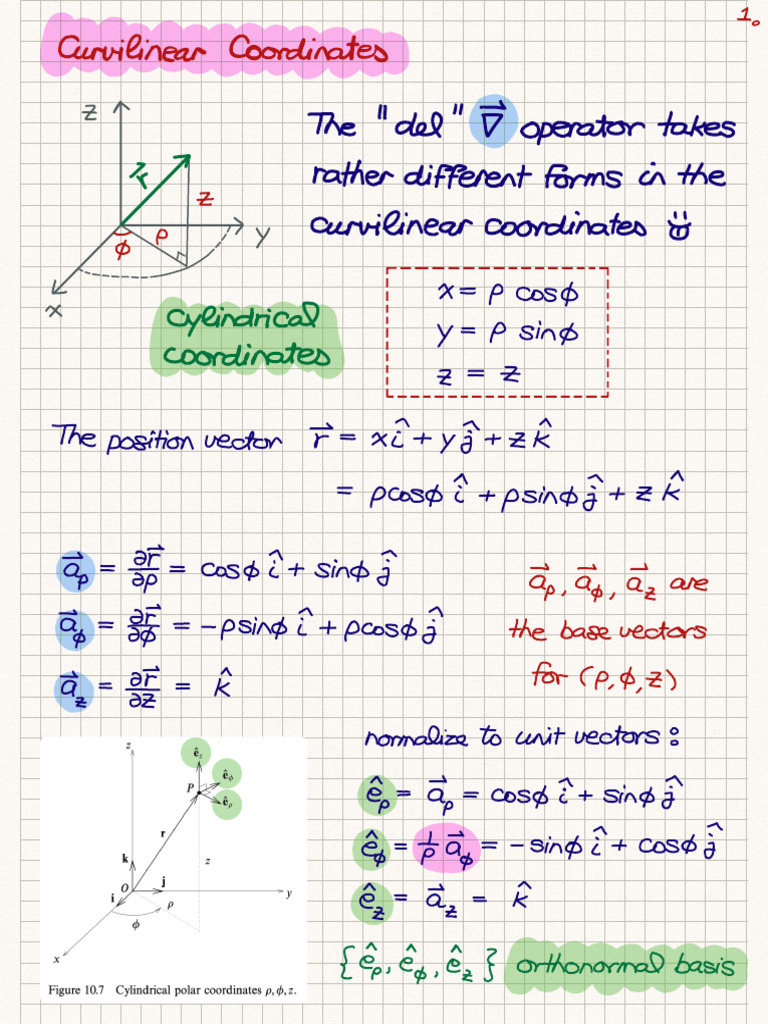 1.
Curvilinear Coordinates
z
r⃗
z
ρ
ϕ
y
x
The "del" ∇⃗ operator takes
rather different forms in the
curvilinear coordinates
cylindrical
coordinates
x = ρ cosϕ
y = ρ sinϕ
z = z
The position vector r⃗ = x î + y ĵ + z k̂
= ρcosϕ î + ρsinϕ ĵ + z k̂
a⃗_ρ = ∂r⃗/∂ρ = cosϕ î + sinϕ ĵ
a⃗_ϕ = ∂r⃗/∂ϕ = -ρsinϕ î + ρcosϕ ĵ
a⃗_z = ∂r⃗/∂z = k̂
a⃗_ρ, a⃗_ϕ, a⃗_z are
the base vectors
for (ρ, ϕ, z)
z
ê_z
ê_ϕ
P
ê_ρ
r
z
k
O
j
i
y
ρ
ϕ
x
Figure 10.7 Cylindrical polar coordinates ρ, ϕ, z.
normalize to unit vectors :
ê_ρ = a⃗_ρ = cosϕ î + sinϕ ĵ
ê_ϕ = 1/ρ a⃗_ϕ = -sinϕ î + cosϕ ĵ
ê_z = a⃗_z = k̂
{ê_ρ, ê_ϕ, ê_z} orthonormal basis